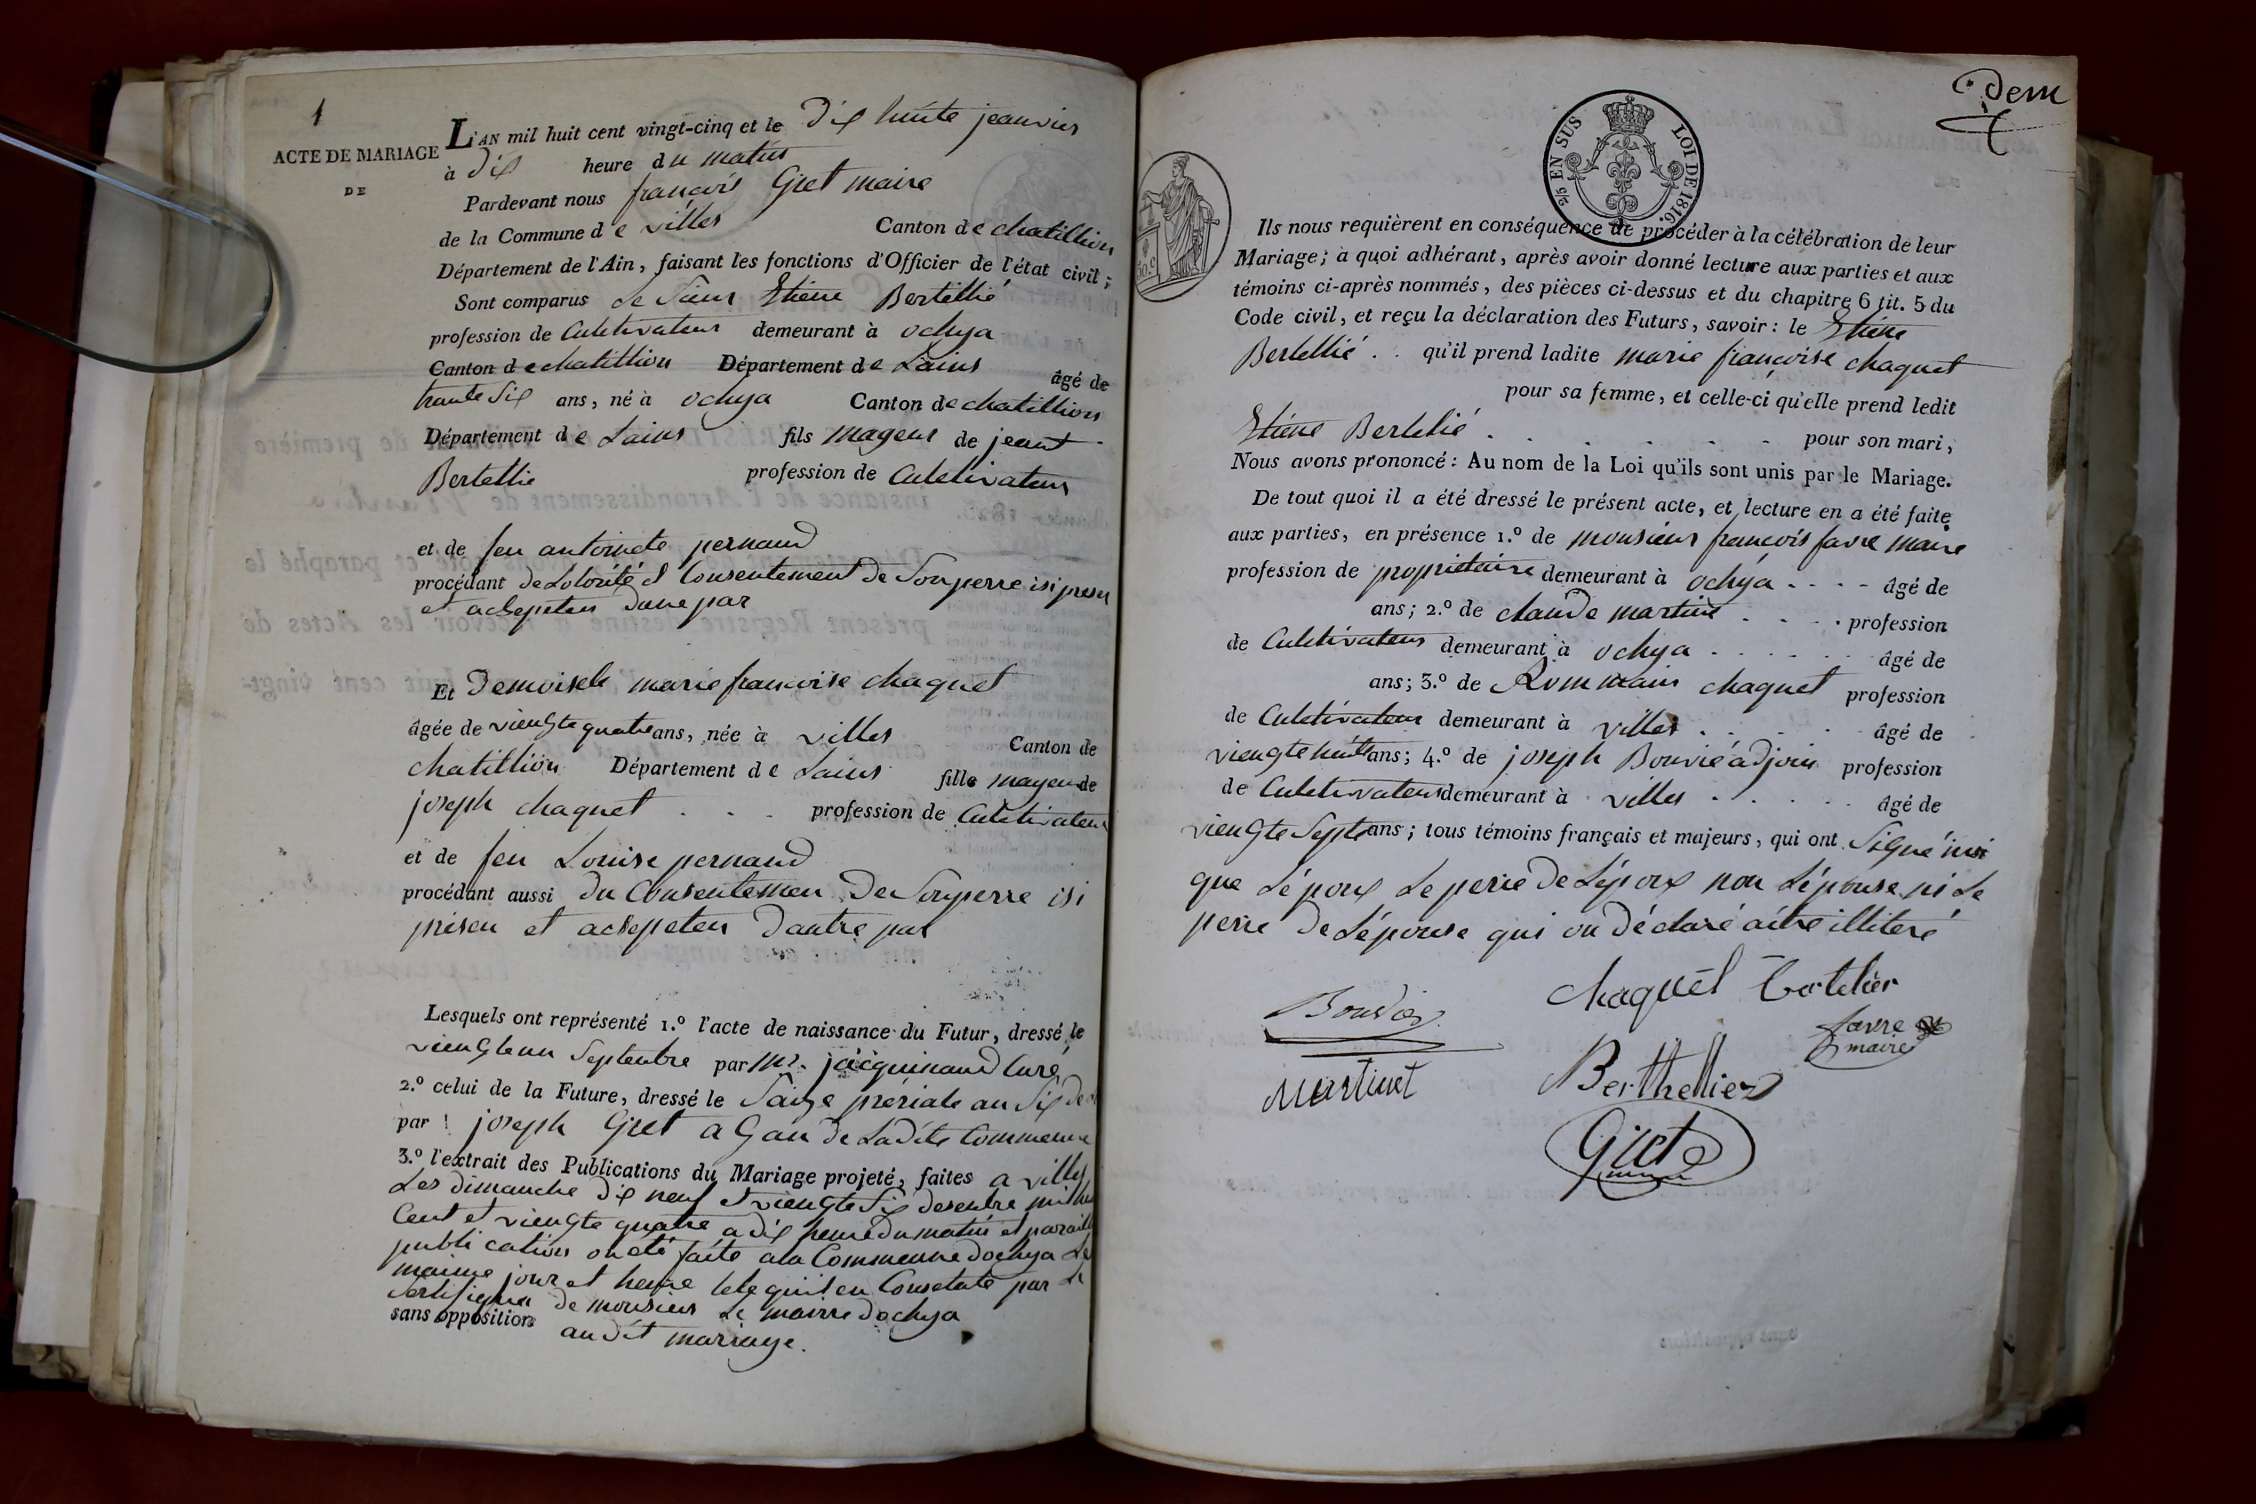 1
ACTE DE MARIAGE
DE
L'AN mil huit cent vingt-cinq et le dix huite jeanvier
à dix heure du matin
Pardevant nous françois Gret maire
de la Commune de villes Canton de chatillion
Département de l'Ain, faisant les fonctions d'Officier de l'état civil ;
Sont comparus le Sieur Etiene Bertellié
profession de Culetivateur demeurant à ochya
Canton de chatillion Département de Lains âgé de
trante six ans, né à ochya Canton de chatillion
Département de Lains fils mageur de jeant
Bertellie profession de Culetivateur
et de feu antoinete pernaud
procédant de Lotorité et Consentement de Son perre isi presen
et acsepeten dune par
Et Demoisele marie francoise chaquet
âgée de viengte quatre ans, née à villes Canton de
chatillion Département de Lains fille mageur de
joseph chaquet . . . profession de Culetivateur
et de feu Louise pernaud
procédant aussi du Consentemen De Son perre isi
prisen et acsepeten dautre par
Lesquels ont représenté 1.º l'acte de naissance du Futur, dressé le
viengte un Septenbre par Mr. jacquinaud Curé
2.º celui de la Future, dressé le Saize prériale an Six
par joseph Gret a Gan de Ladite Commeune
3.º l'extrait des Publications du Mariage projeté, faites a villes
Les dimanche dix neuf et viengte Six desenbre mil hui
Cent et viengte quatre a dix heure du matin et paraille
publi cation on été faite a la Commeune dochya Le
maime jour et heure tele qui'l en Consetate par Le
Sertifiquea de monsieur Le mairre dochya
sans opposition au dit mariage.
Dem
2/5 EN SUS LOI DE 1816.
Ils nous requièrent en conséquence de procéder à la célébration de leur
Mariage ; à quoi adhérant, après avoir donné lecture aux parties et aux
témoins ci-après nommés, des pièces ci-dessus et du chapitre 6 tit. 5 du
Code civil, et reçu la déclaration des Futurs, savoir : le Etiene
Bertellié . . qu'il prend ladite marie françoise chaquet
pour sa femme, et celle-ci qu'elle prend ledit
Etiene Bertelié . . . . . . pour son mari,
Nous avons prononcé : Au nom de la Loi qu'ils sont unis par le Mariage.
De tout quoi il a été dressé le présent acte, et lecture en a été faite
aux parties, en présence 1.º de monsieur françois favre maire
profession de proprietaire demeurant à ochya . . . . âgé de
ans ; 2.º de claude martine . . . . profession
de Culetivateur demeurant à ochya . . . . . . âgé de
ans ; 3.º de Rommain chaquet profession
de Culetivateur demeurant à villes . . . . . âgé de
viengte huit ans ; 4.º de joseph Bouvié adjoin profession
de Culetivateur demeurant à villes . . . . . âgé de
viengte Septe ans ; tous témoins français et majeurs, qui ont Signé insi
que Lépoux Le perre de Lépoux non Lépouse ni Le
perre de Lépouse qui on déclaré aitre illiteré
chaquet Bertelier
Bouvier
favre
maire
Martinet
Berthellier
Gret